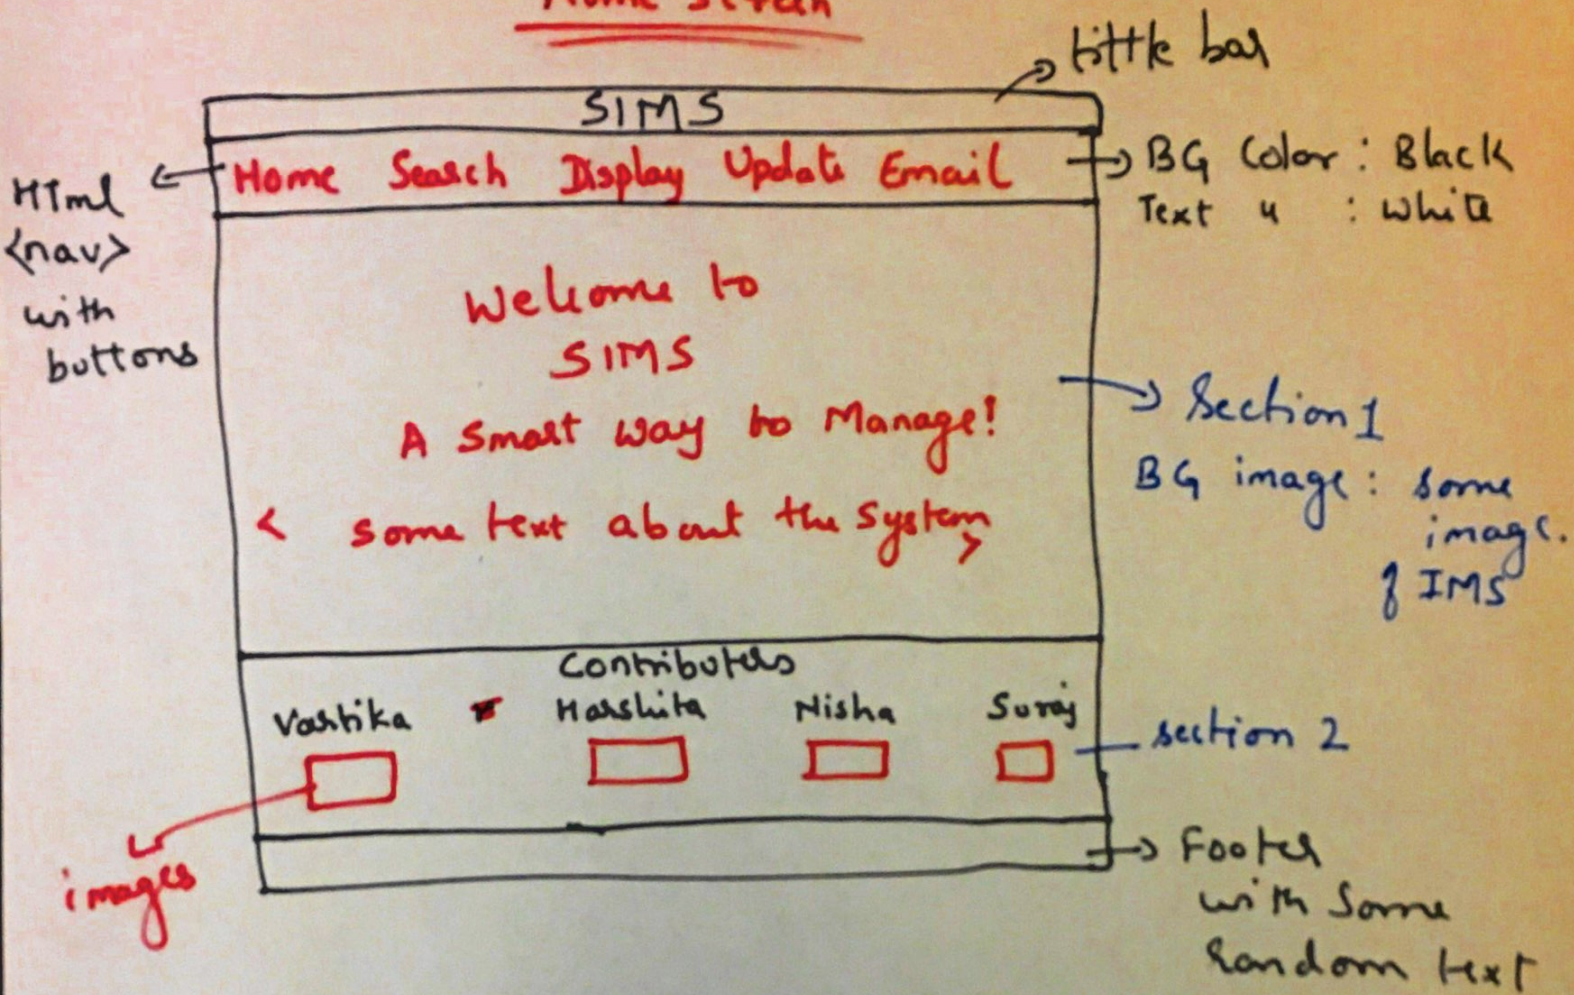 Home Screen
tittle bar
SIMS
Home Search Display Update Email
BG Color : Black
Text " : White
HTml
<nav>
with
buttons
Welcome to
SIMS
A Smart way to Manage!
< some text about the System
>
Section 1
BG image : some
image.
of IMS
Contributers
Vartika Harshita Nisha Suraj
section 2
images
Footer
with some
random text